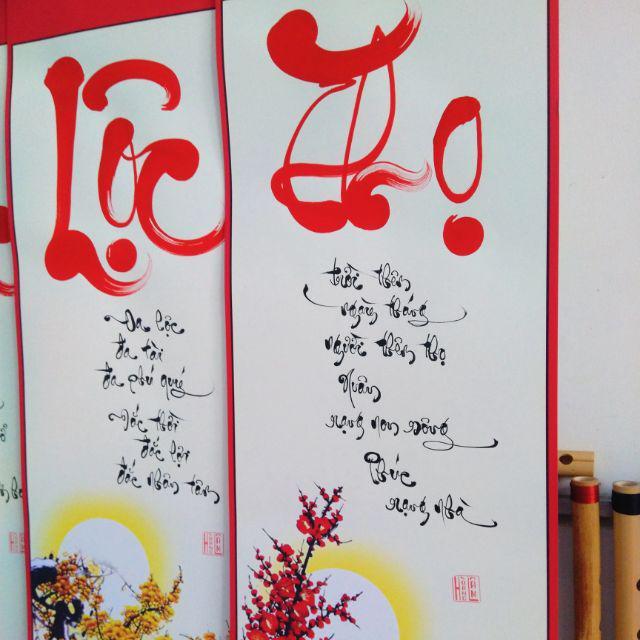 Lộc
Đa lộc
đa tài
đa phú quý
Đắc thời
đắc lợi
đắc nhân tâm
Thọ
trời thêm
ngày tháng
người thêm thọ
Xuân
rạng non sông
Phúc
rạng nhà